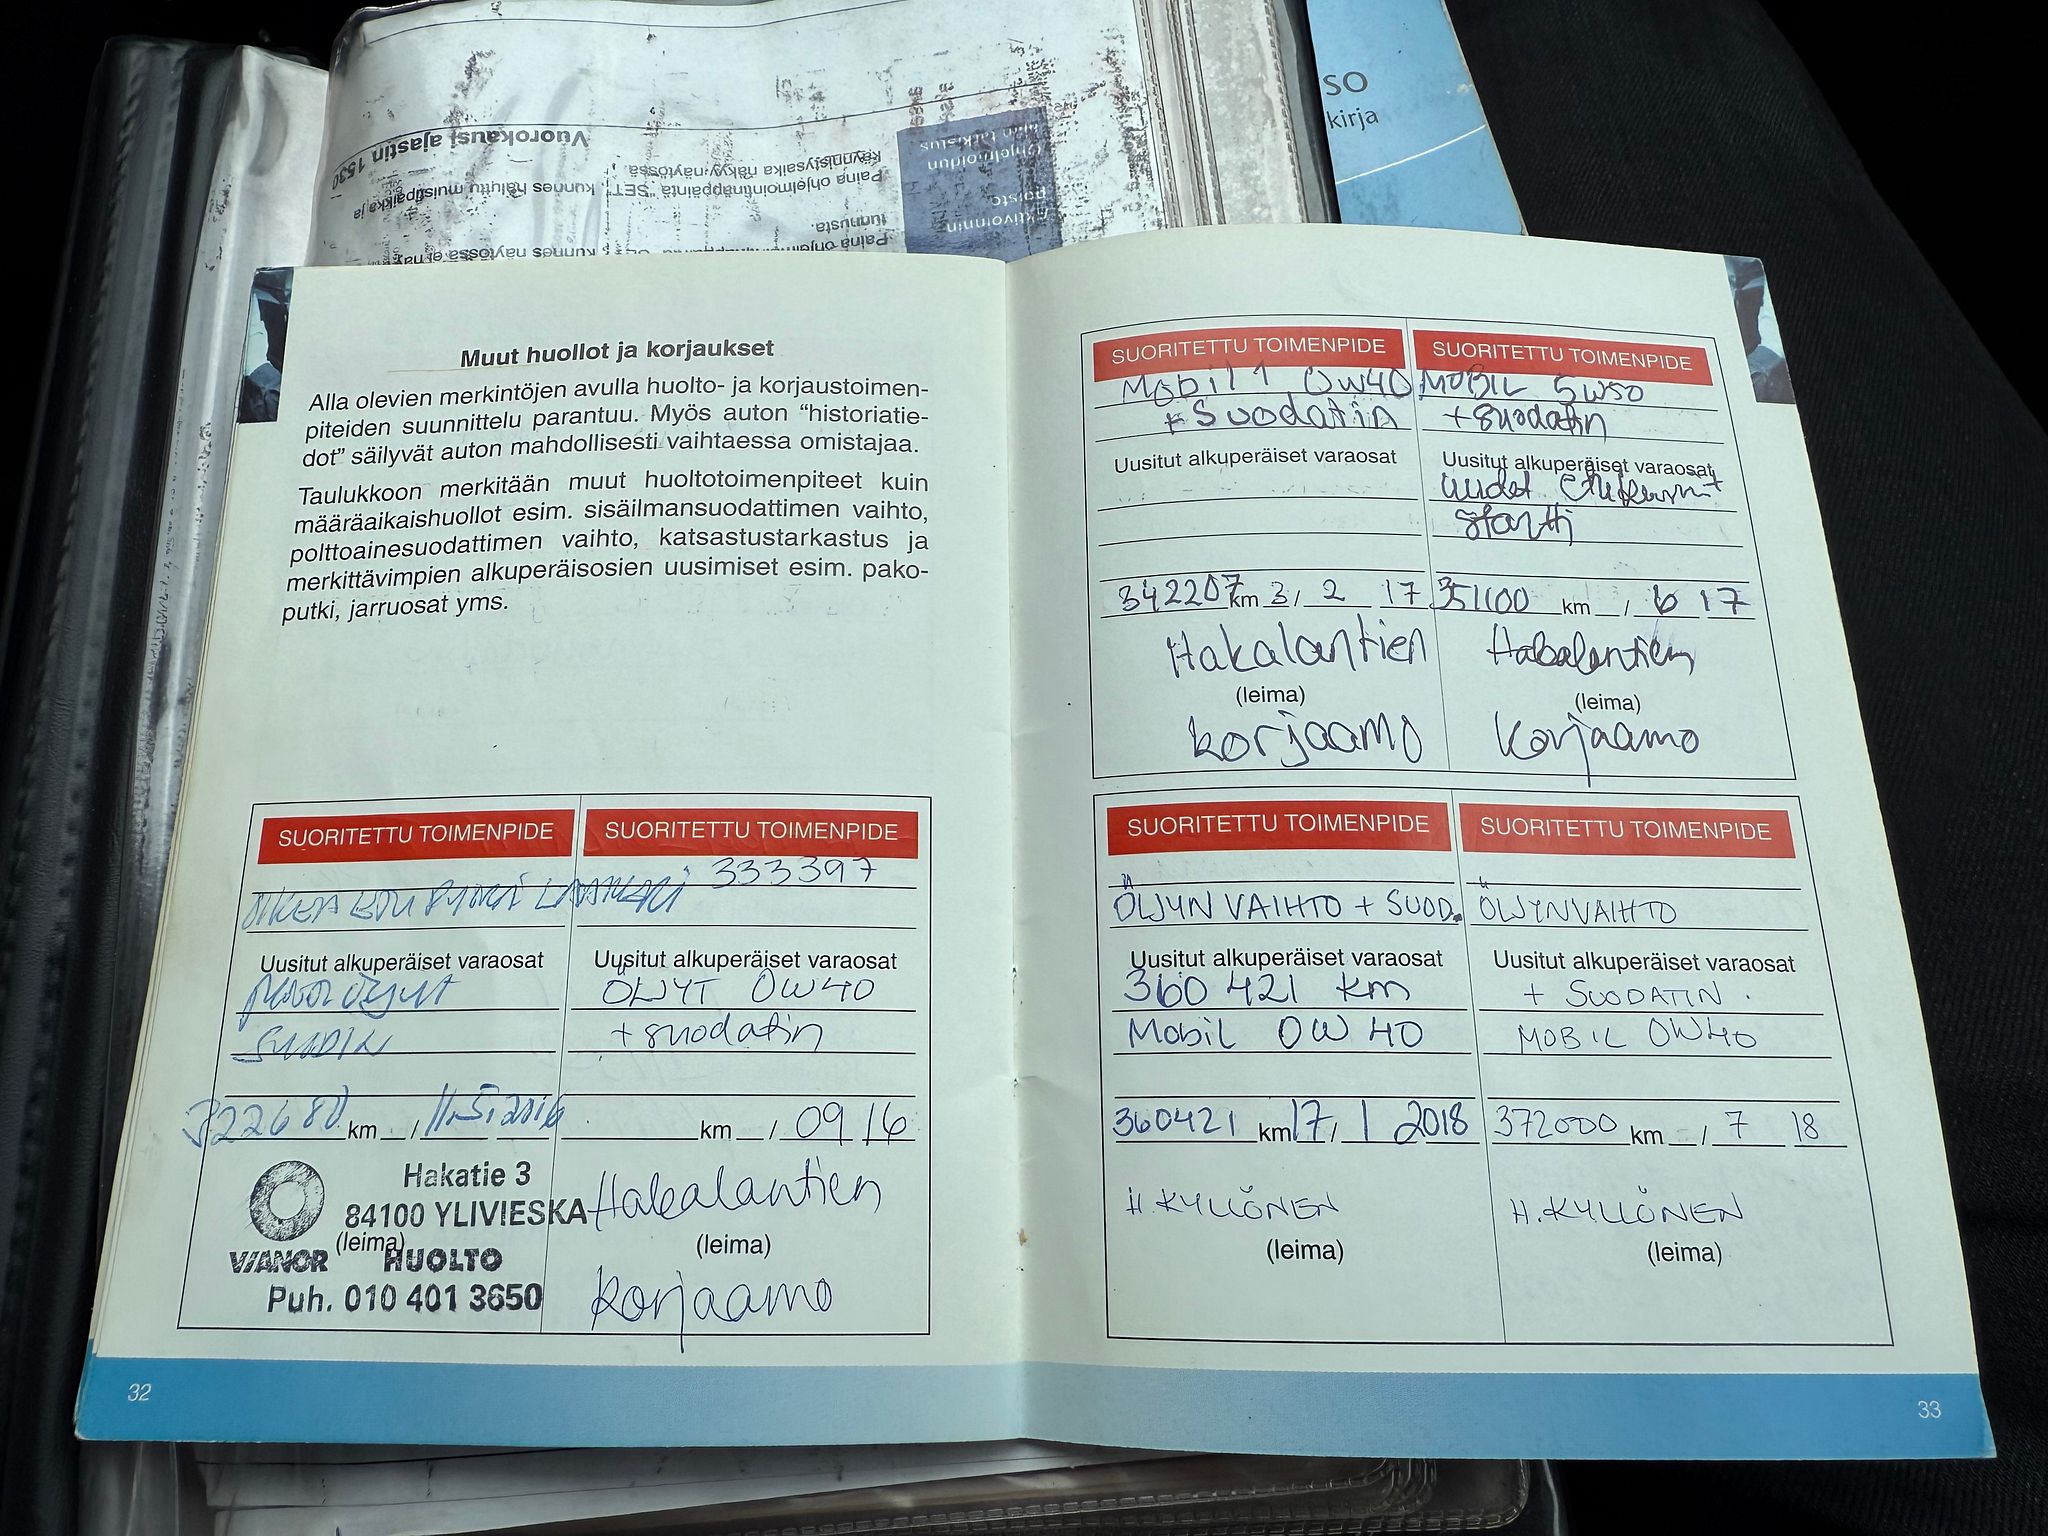 SO
kirja
Vuorokausi ajastin 1530
Paina ohjelmointinäppäintä "SET", kunnes haluttu muistipaikka ja
käynnistysaika näkyy näytössä
Ohjelmoidun
ajan tarkistus
Aktivoinnin
poisto
kunnes näytössä ei
tunnusta.
Muut huollot ja korjaukset
Alla olevien merkintöjen avulla huolto- ja korjaustoimen-
piteiden suunnittelu parantuu. Myös auton “historiatie-
dot” säilyvät auton mahdollisesti vaihtaessa omistajaa.
Taulukkoon merkitään muut huoltotoimenpiteet kuin
määräaikaishuollot esim. sisäilmansuodattimen vaihto,
polttoainesuodattimen vaihto, katsastustarkastus ja
merkittävimpien alkuperäisosien uusimiset esim. pako-
putki, jarruosat yms.
SUORITETTU TOIMENPIDE
OIKEA ETU PYÖRÄ LAAKERI
Uusitut alkuperäiset varaosat
öljyt
322680 km / 11.5.2016
Hakatie 3
84100 YLIVIESKA
(leima)
VIANOR HUOLTO
Puh. 010 401 3650
SUORITETTU TOIMENPIDE
333397
Uusitut alkuperäiset varaosat
ÖLJYT 0W40
+ suodatin
km / 09 16
Hakalantien
(leima)
korjaamo
32
SUORITETTU TOIMENPIDE
Mobil 1 0W40
+ Suodatin
Uusitut alkuperäiset varaosat
342207 km 3/ 2 17
Hakalantien
(leima)
korjaamo
SUORITETTU TOIMENPIDE
MOBIL 5W50
+ suodatin
Uusitut alkuperäiset varaosat
uudet
startti
351100 km / 6 17
Hakalantien
(leima)
korjaamo
SUORITETTU TOIMENPIDE
ÖLJYN VAIHTO + SUOD.
Uusitut alkuperäiset varaosat
360 421 km
Mobil 0W 40
360421 km 17/ 1 2018
H. KYLLÖNEN
(leima)
SUORITETTU TOIMENPIDE
ÖLJYNVAIHTO
Uusitut alkuperäiset varaosat
+ SUODATIN.
MOBIL 0W40
372000 km / 7 18
H. KYLLÖNEN
(leima)
33